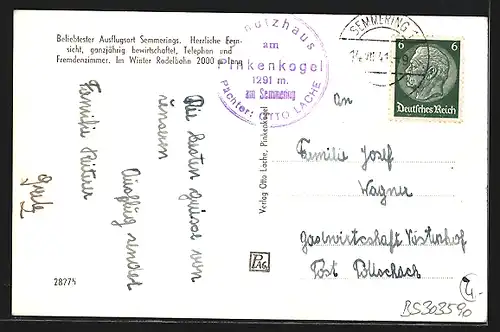 Beliebtester Ausflugsort Semmerings. Herrliche Fern-
sicht, ganzjährig bewirtschaftet, Telephon und
Fremdenzimmer. Im Winter Rodelbahn 2000 m lang
Schutzhaus
am
Pinkenkogel
1291 m.
am Semmering
Pächter: OTTO LACHE
SEMMERING 1
6 6
Deutsches Reich
An
Familie Josef
Wagner
Gastwirtschaft
Post
Verlag Otto Lache, Pinkenkogel
Die besten Grüsse von
unseren
Ausflug sendet
Familie
PAG
28275
BS303590